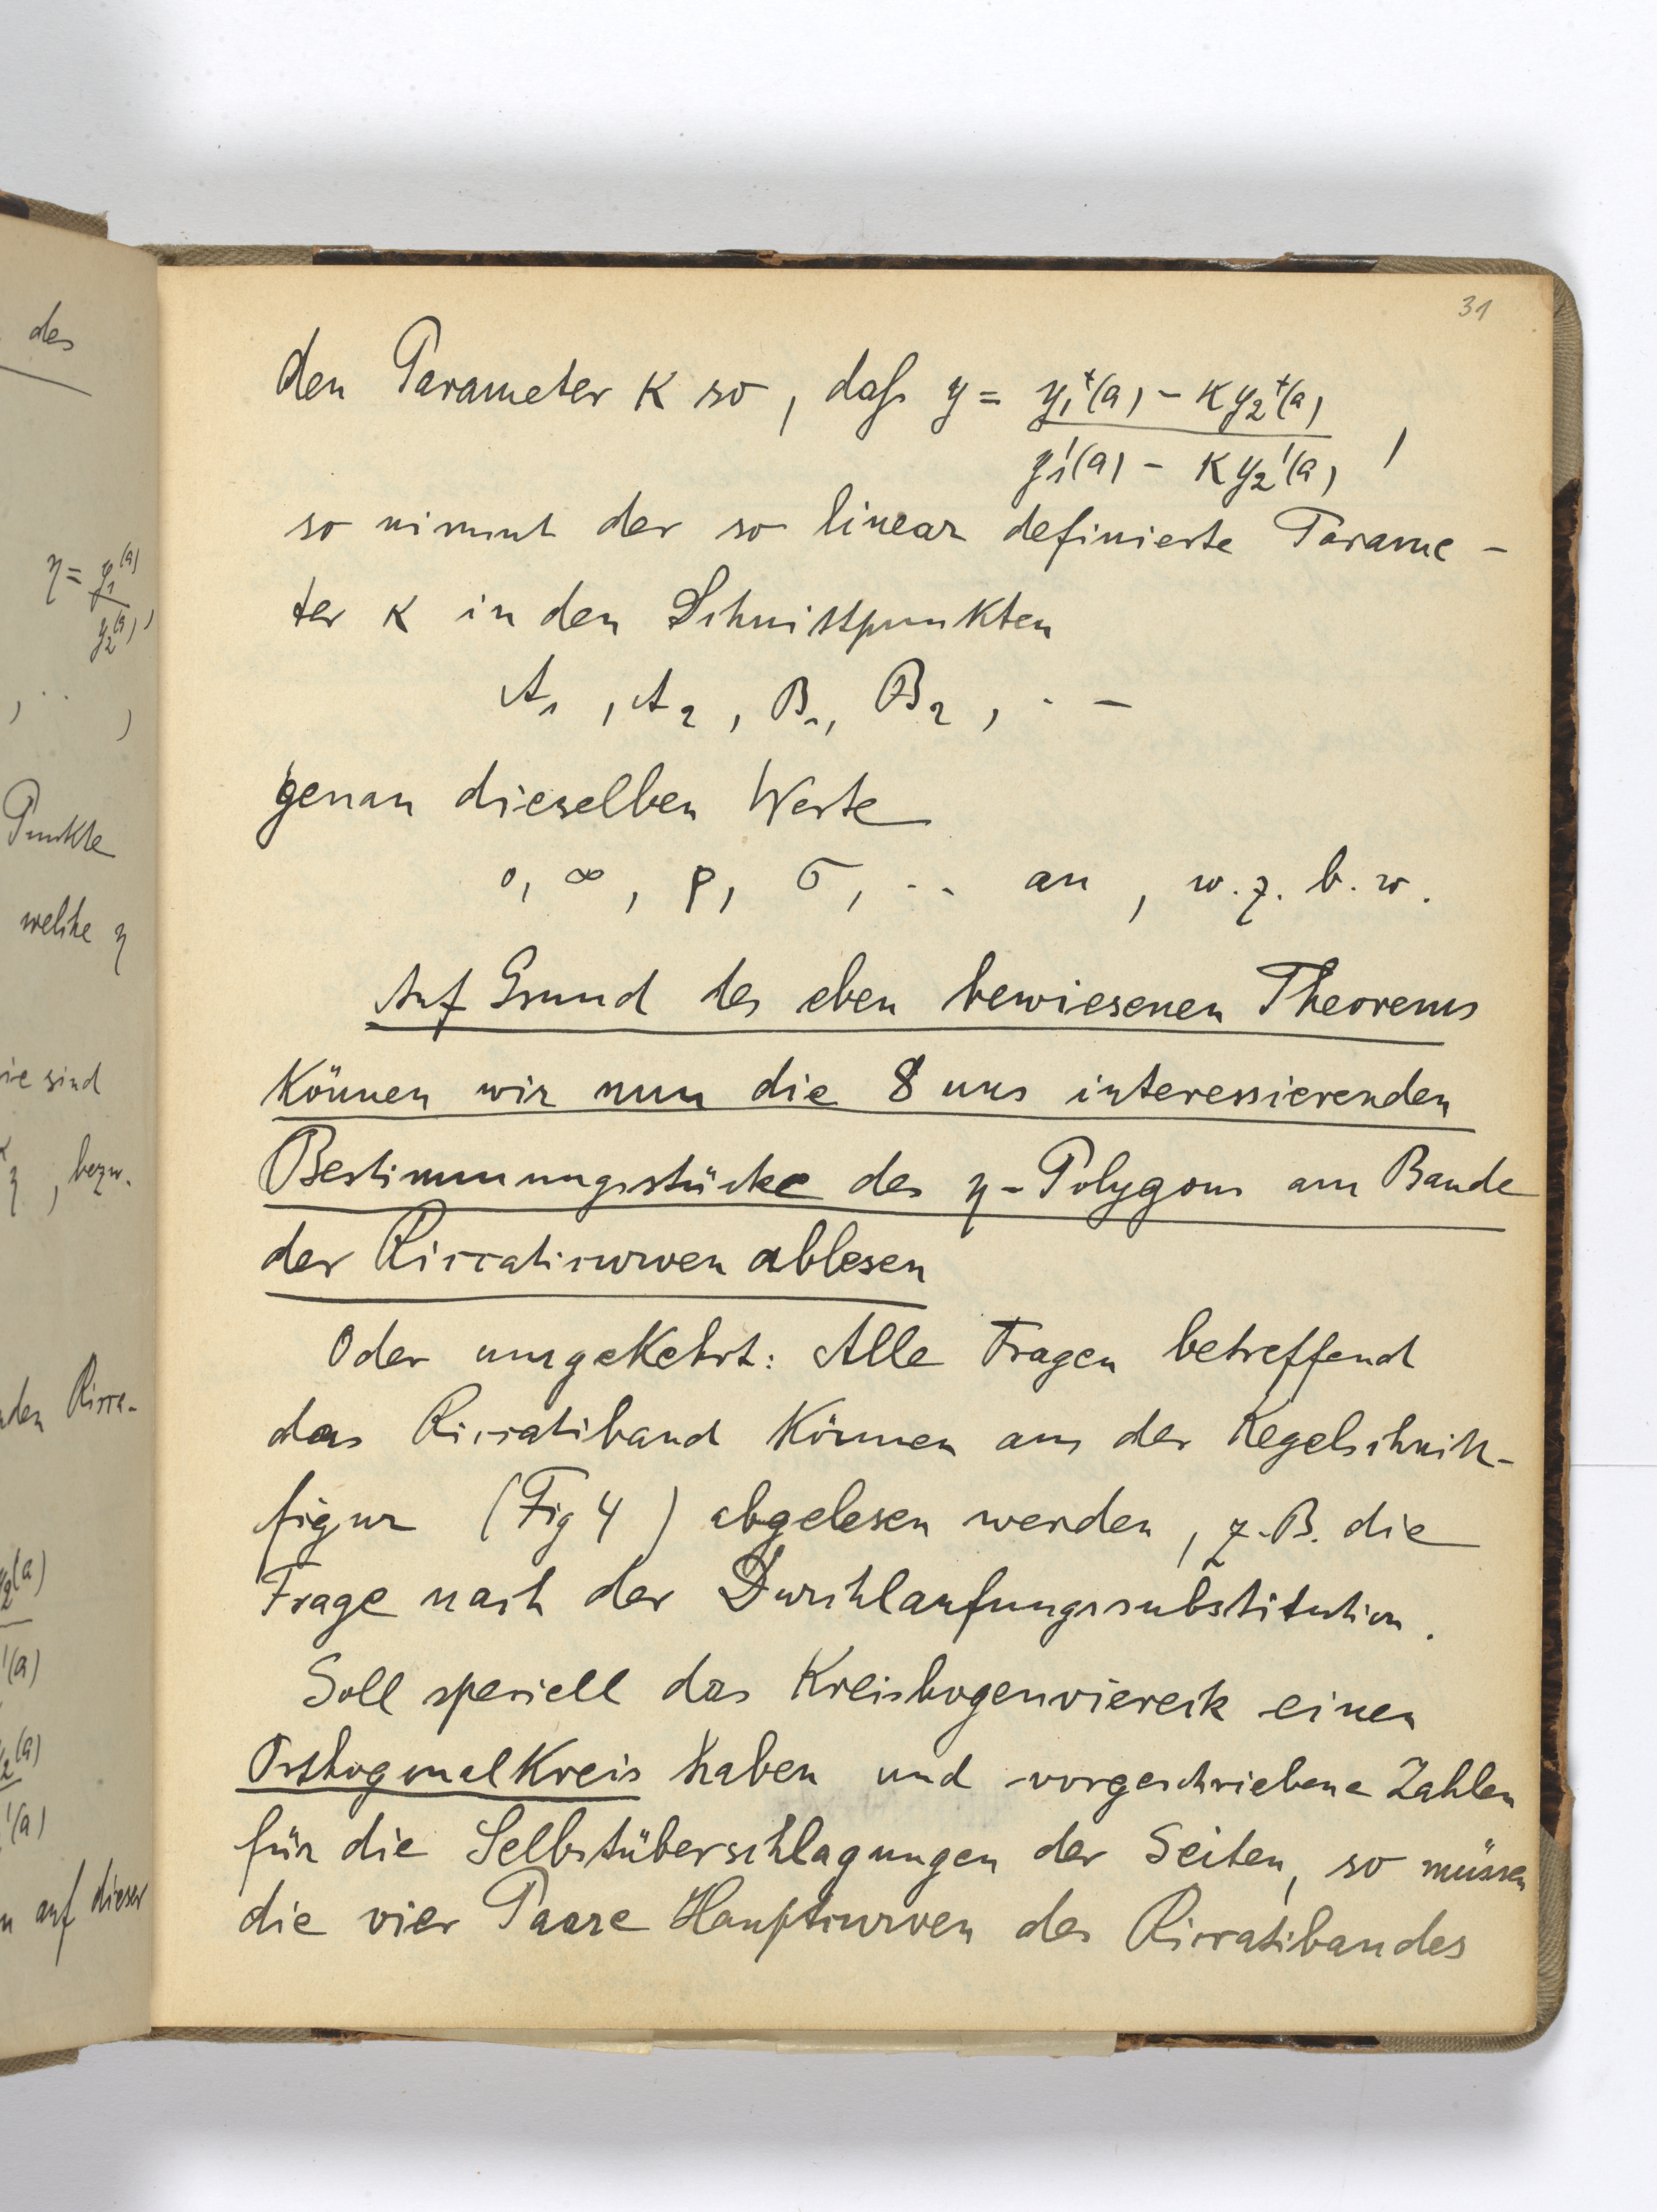 des
η = y₁(a)
y₂(a) ,
Punkte
welche η
sind
η , bezw.
den Ricca-
y₂(a)
'(a)
y₂(a)
'(a)
auf dieser
31
den Parameter K so, daß y = y₁⁺(a) - K y₂⁺(a)
y₁'(a) - K y₂'(a) ,
so nimmt der so linear definierte Parame-
ter K in den Schnittpunkten
A₁, A₂, B₁, B₂, . -
genau dieselben Werte
0, ∞, ρ, σ, .. an, w.z.b.w.
Auf Grund des eben bewiesenen Theorems
können wir nun die 8 uns interessierenden
Bestimmungsstücke des η-Polygons am Bande
der Riccaticurven ablesen
Oder umgekehrt: Alle Fragen betreffend
das Riccatiband können aus der Kegelschnitt-
figur (Fig 4) abgelesen werden, z.B. die
Frage nach der Durchlaufungssubstitution.
Soll speciell das Kreisbogenviereck einen
Orthogonalkreis haben und vorgeschriebene Zahlen
für die Selbstüberschlagungen der Seiten, so müssen
die vier Paare Hauptcurven des Riccatibandes